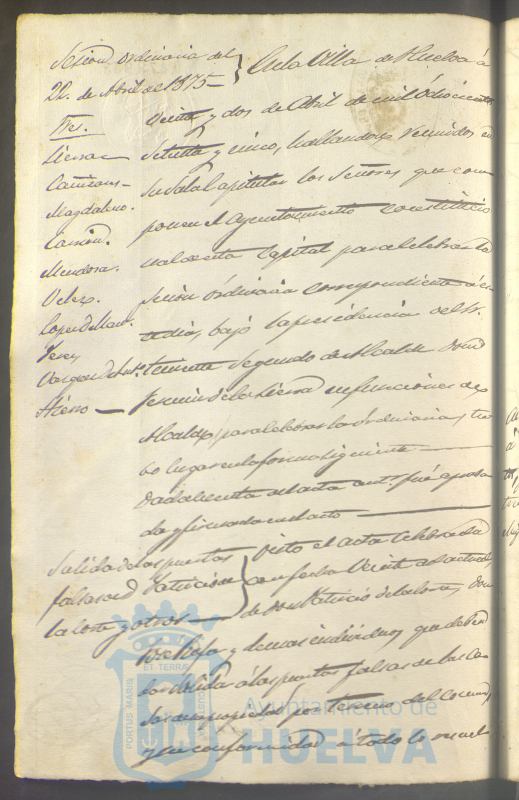 Sesion ordinaria del
22. de Abril de 1875-
Sres.
Lierra
Cañizares-
Magdaleno.
Garcia.
Mendosa.
Velez.
Lopez de Haro.
Perez
Vazquez de Ant.º
Hierro
En la Villa de Huelva á
veinte y dos de Abril de mil ochocientos
setenta y cinco, hallandose reunidos en
su Sala Capitular los Señores que com
ponen el Ayuntamiento constitucio
nal de esta Capital para celebrar la
sesion ordinaria correspondiente á es
te dia, bajo la presidencia del Sr.
teniente Segundo de Alcalde Don
de la Sierra en funciones de
Alcalde, para celebrar la ordinaria, tu
bo lugar en la forma siguiente
Dada lectura al acta ant.r fué aproba
da y firmada en el acto
Salida de las puertas
falsas de D. Patricio
la Corte y otros
Visto el acta celebrada
con fecha Veinte del actual,
de Don Patricio de la Corte, Don
y demas individuos, que deben
dar salida á las puertas falsas de las Ca
sas de su propiedad por terreno del comun,
y en conformidad á todo lo
PORTUS MARIS
ET TERRAE
Ayuntamiento de
HUELVA